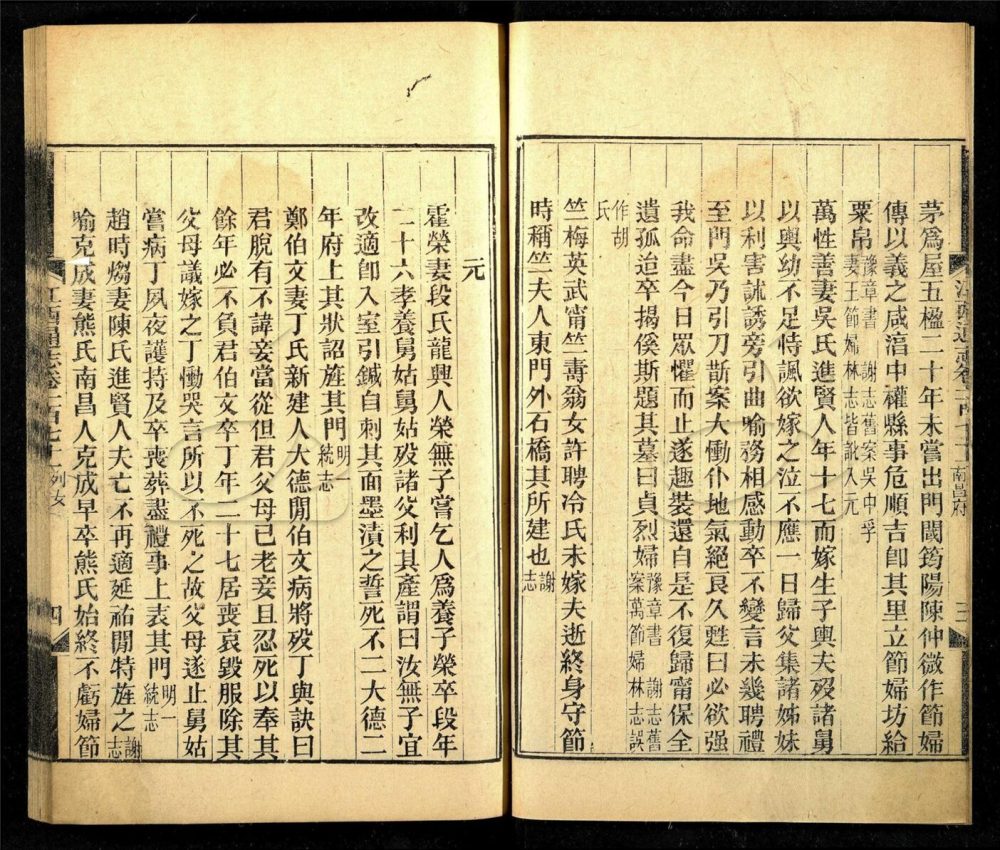 茅爲屋五楹二十年未嘗出門閾筠陽陳仲微作節婦
傳以義之咸淳中權縣事危順吉卽其里立節婦坊給
粟帛豫章書 謝志舊案吳中孚
妻王節婦林志皆訛入元
萬性善妻吳氏進賢人年十七而嫁生子輿夫歿諸舅
以輿幼不足恃諷欲嫁之泣不應一日歸父集諸姊妹
以利害訹誘旁引曲喻務相感動卒不變言未幾聘禮
至門吳乃引刀斮案大慟仆地氣絕良久甦曰必欲强
我命盡今日眾懼而止遂趣裝還自是不復歸甯保全
遺孤迨卒揭傒斯題其墓曰貞烈婦豫章書 謝志舊
案萬節婦林志誤
作胡
氏
竺梅英武甯竺壽翁女許聘冷氏未嫁夫逝終身守節
時稱竺夫人東門外石橋其所建也謝
志
元
霍榮妻段氏龍興人榮無子嘗乞人爲養子榮卒段年
二十六孝養舅姑舅姑歿諸父利其產謂曰汝無子宜
改適卽入室引鍼自刺其面墨漬之誓死不二大德二
年府上其狀詔旌其門明一
統志
鄭伯文妻丁氏新建人大德閒伯文病將歿丁與訣曰
君脫有不諱妾當從但君父母已老妾且忍死以奉其
餘年必不負君伯文卒丁年二十七居喪哀毀服除其
父母議嫁之丁慟哭言所以不死之故父母遂止舅姑
嘗病丁夙夜護持及卒喪葬盡禮事上表其門明一
統志
趙時㷟妻陳氏進賢人夫亡不再適延祐閒特旌之謝
志
喻克成妻熊氏南昌人克成早卒熊氏始終不虧婦節
江西通志卷一百七十一 列女 四